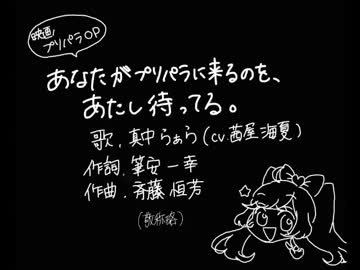 映画
プリパラOP
あなたがプリパラに来るのを、
あたし待ってる。
歌. 真中らぁら(cv.茜屋海夏)
作詞. 筆安一幸
作曲. 斉藤恒芳
(敬称略)